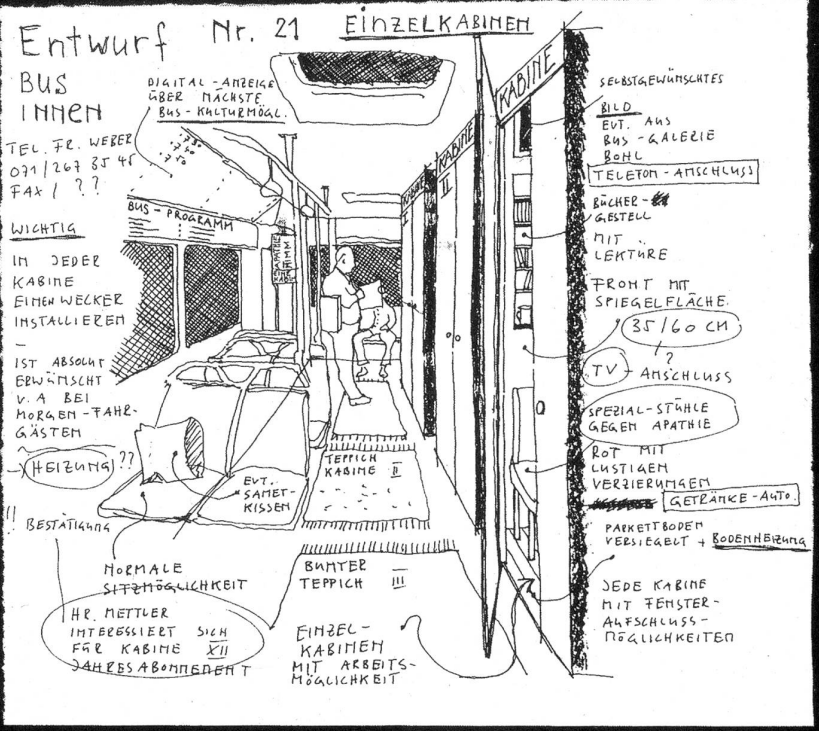 Entwurf Nr. 21
EINZELKABINEN
BUS
INNEN
TEL. FR. WEBER
071/267 35 45
FAX / ??
DIGITAL-ANZEIGE
ÜBER NÄCHSTE
BUS-KULTURMÖGL.
WICHTIG
IN JEDER
KABINE
EINEN WECKER
INSTALLIEREN
–
IST ABSOLUT
ERWÜNSCHT
V.A BEI
MORGEN-FAHR-
GÄSTEN
HEIZUNG ??
!! BESTÄTIGUNG
BUS-PROGRAMM
KABINE
KABINE
II
KABINE
EVT.
SAMET-
KISSEN
TEPPICH
KABINE II
BUNTER
TEPPICH III
NORMALE
SITZMÖGLICHKEIT
HR. METTLER
INTERESSIERT SICH
FÜR KABINE XII
JAHRESABONNEMENT
EINZEL-
KABINEN
MIT ARBEITS-
MÖGLICHKEIT
SELBSTGEWÜNSCHTES
BILD
EVT. AUS
BUS-GALERIE
BOHL
TELEFON-ANSCHLUSS
BÜCHER-
GESTELL
MIT
LEKTÜRE
FRONT MIT
SPIEGELFLÄCHE.
35/60 CM
?
TV-ANSCHLUSS
SPEZIAL-STÜHLE
GEGEN APATHIE
ROT MIT
LUSTIGEN
VERZIERUNGEN
GETRÄNKE-AUTO.
PARKETTBODEN
VERSIEGELT + BODENHEIZUNG
JEDE KABINE
MIT FENSTER-
AUFSCHLUSS-
MÖGLICHKEITEN